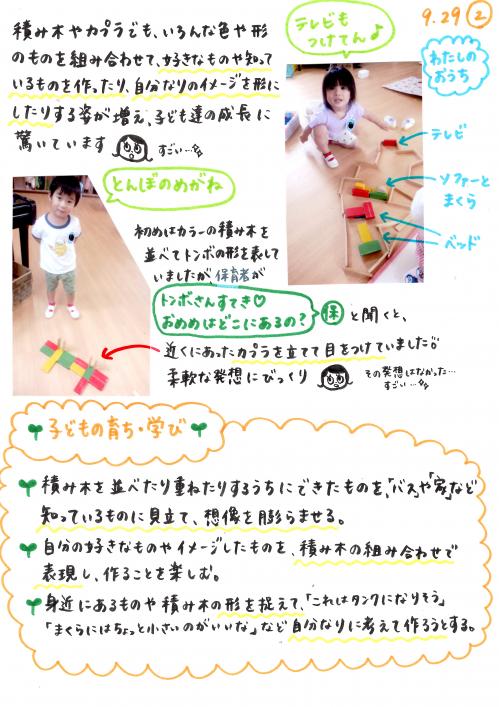 9.29 ②
積み木やカプラでも、いろんな色や形
のものを組み合わせて、好きなものや知って
いるものを作ったり、自分なりのイメージを形に
したりする姿が増え、子ども達の成長に
驚いています
すごい…
テレビも
つけてん♪
わたしの
おうち
テレビ
ソファーと
まくら
ベッド
とんぼのめがね
初めはカラーの積み木を
並べてトンボの形を表して
いましたが保育者が
トンボさんすてき♡
おめめはどこにあるの？
保 と聞くと、
近くにあったカプラを立てて目をつけていました
柔軟な発想にびっくり
その発想はなかった…
すごい…
子どもの育ち・学び
積み木を並べたり重ねたりするうちにできたものを、「バス」や「家」など
知っているものに見立て、想像を膨らませる。
自分の好きなものやイメージしたものを、積み木の組み合わせで
表現し、作ることを楽しむ。
身近にあるものや積み木の形を捉えて、「これはタンクになりそう」
「まくらにはちょっと小さいのがいいな」など自分なりに考えて作ろうとする。